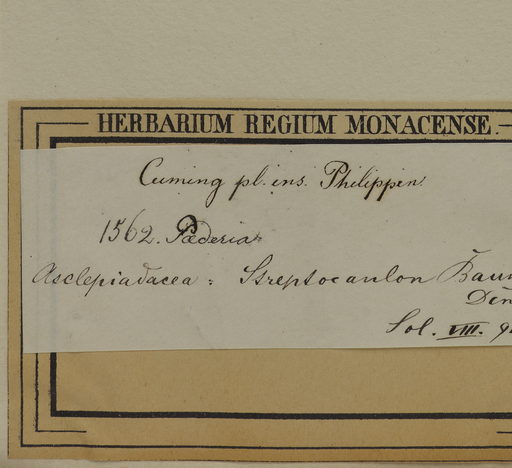 HERBARIUM REGIUM MONACENSE.
Cuming pl. ins. Philippin.
1562. Pæderia
Asclepiadacea: Streptocaulon Baum
Sol. VIII.